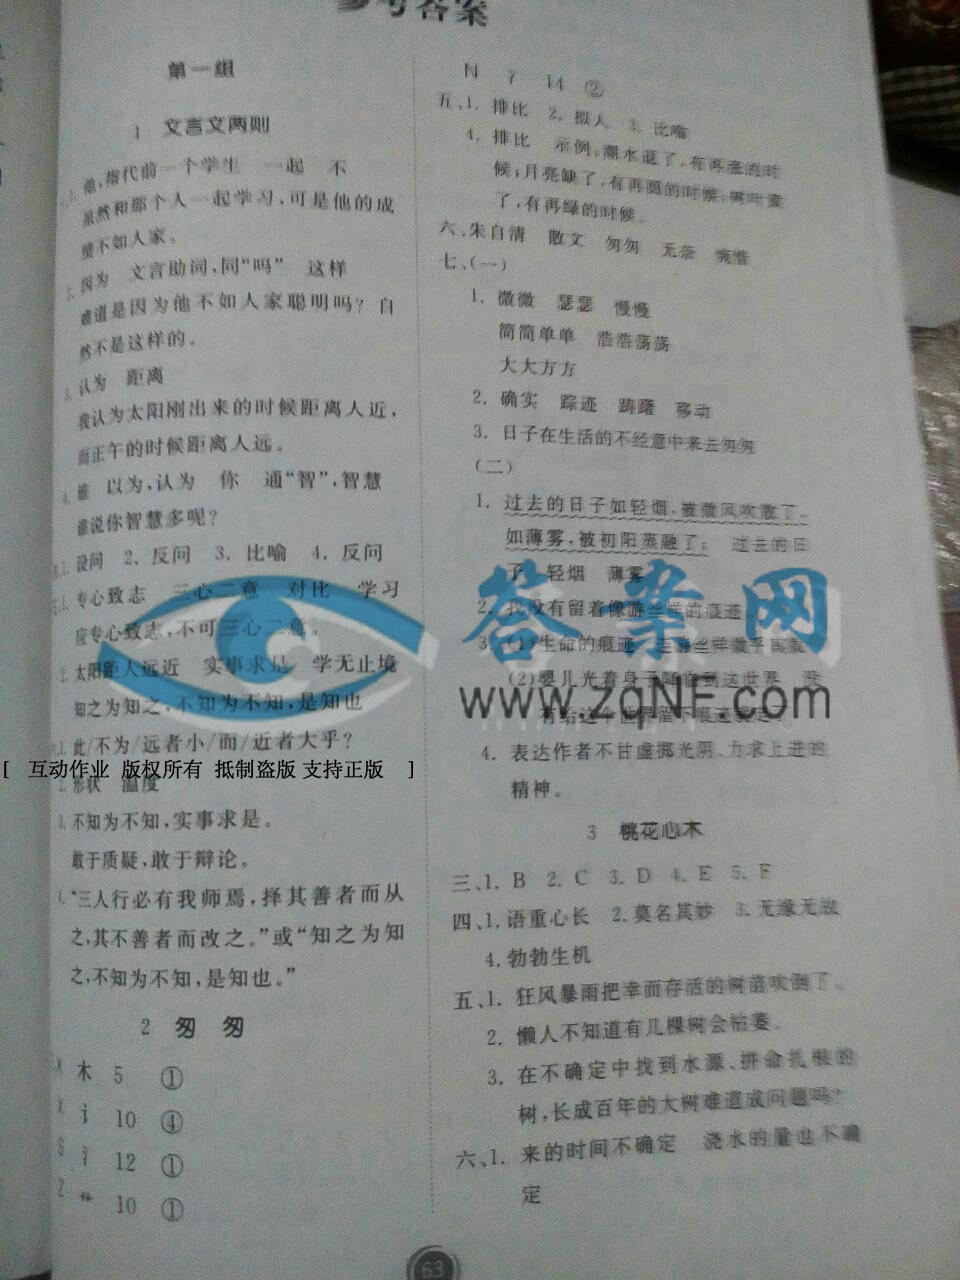 参考答案
第一组
1 文言文两则
指代前一个学生 一起 不
虽然和那个人一起学习,可是他的成
绩不如人家。
因为 文言助词,同“吗” 这样
难道是因为他不如人家聪明吗？自
然不是这样的。
认为 距离
我认为太阳刚出来的时候距离人近,
而正午的时候距离人远。
谁 以为,认为 你 通“智”,智慧
谁说你智慧多呢？
设问 2. 反问 3. 比喻 4. 反问
专心致志 三心二意 对比 学习
应专心致志,不可三心二意。
2. 太阳距人远近 实事求是 学无止境
知之为知之,不知为不知,是知也
此/不为/远者小/而/近者大乎？
2. 形状 温度
3. 不知为不知,实事求是。
敢于质疑,敢于辩论。
“三人行必有我师焉,择其善者而从
之,其不善者而改之。”或“知之为知
之,不知为不知,是知也。”
2 匆匆
木 5 ①
X 讠 10 ④
S 12 ①
Z 10 ①
N 14 ②
五、1. 排比 2. 拟人 3. 比喻
4. 排比 示例:潮水退了,有再涨的时
候;月亮缺了,有再圆的时候;
了,有再绿的时候。
六、朱自清 散文 匆匆 无奈 惋惜
七、(一)
1. 微微 瑟瑟 慢慢
简简单单 浩浩荡荡
大大方方
2. 确实 踪迹 踌躇 移动
3. 日子在生活的不经意中来去匆匆
(二)
1. 过去的日子如轻烟,被微风吹散了,
如薄雾,被初阳蒸融了; 过去的日
子 轻烟 薄雾
2. 我没有留着像游丝样的痕迹
3. (1)生命的痕迹 连游丝样
(2)婴儿光着身子降临到这世界 没
有给这个世界留下痕迹
4. 表达作者不甘虚掷光阴、力求上进的
精神。
3 桃花心木
三、1. B 2. C 3. D 4. E 5. F
四、1. 语重心长 2. 莫名其妙 3. 无缘无故
4. 勃勃生机
五、1. 狂风暴雨把幸而存活的树苗吹倒了。
2. 懒人不知道有几棵树会枯萎。
3. 在不确定中找到水源、拼命扎根的
树,长成百年的大树难道成问题吗？
六、1. 来的时间不确定 浇水的量也不确
定
63
答案网
www.zqNF.com
[ 互动作业 版权所有 抵制盗版 支持正版 ]